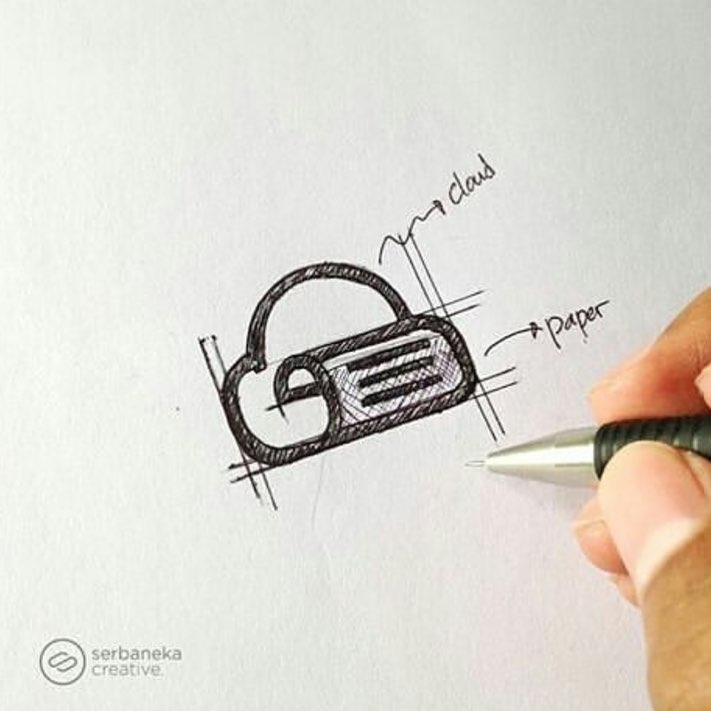 cloud
paper
serbaneka
creative.